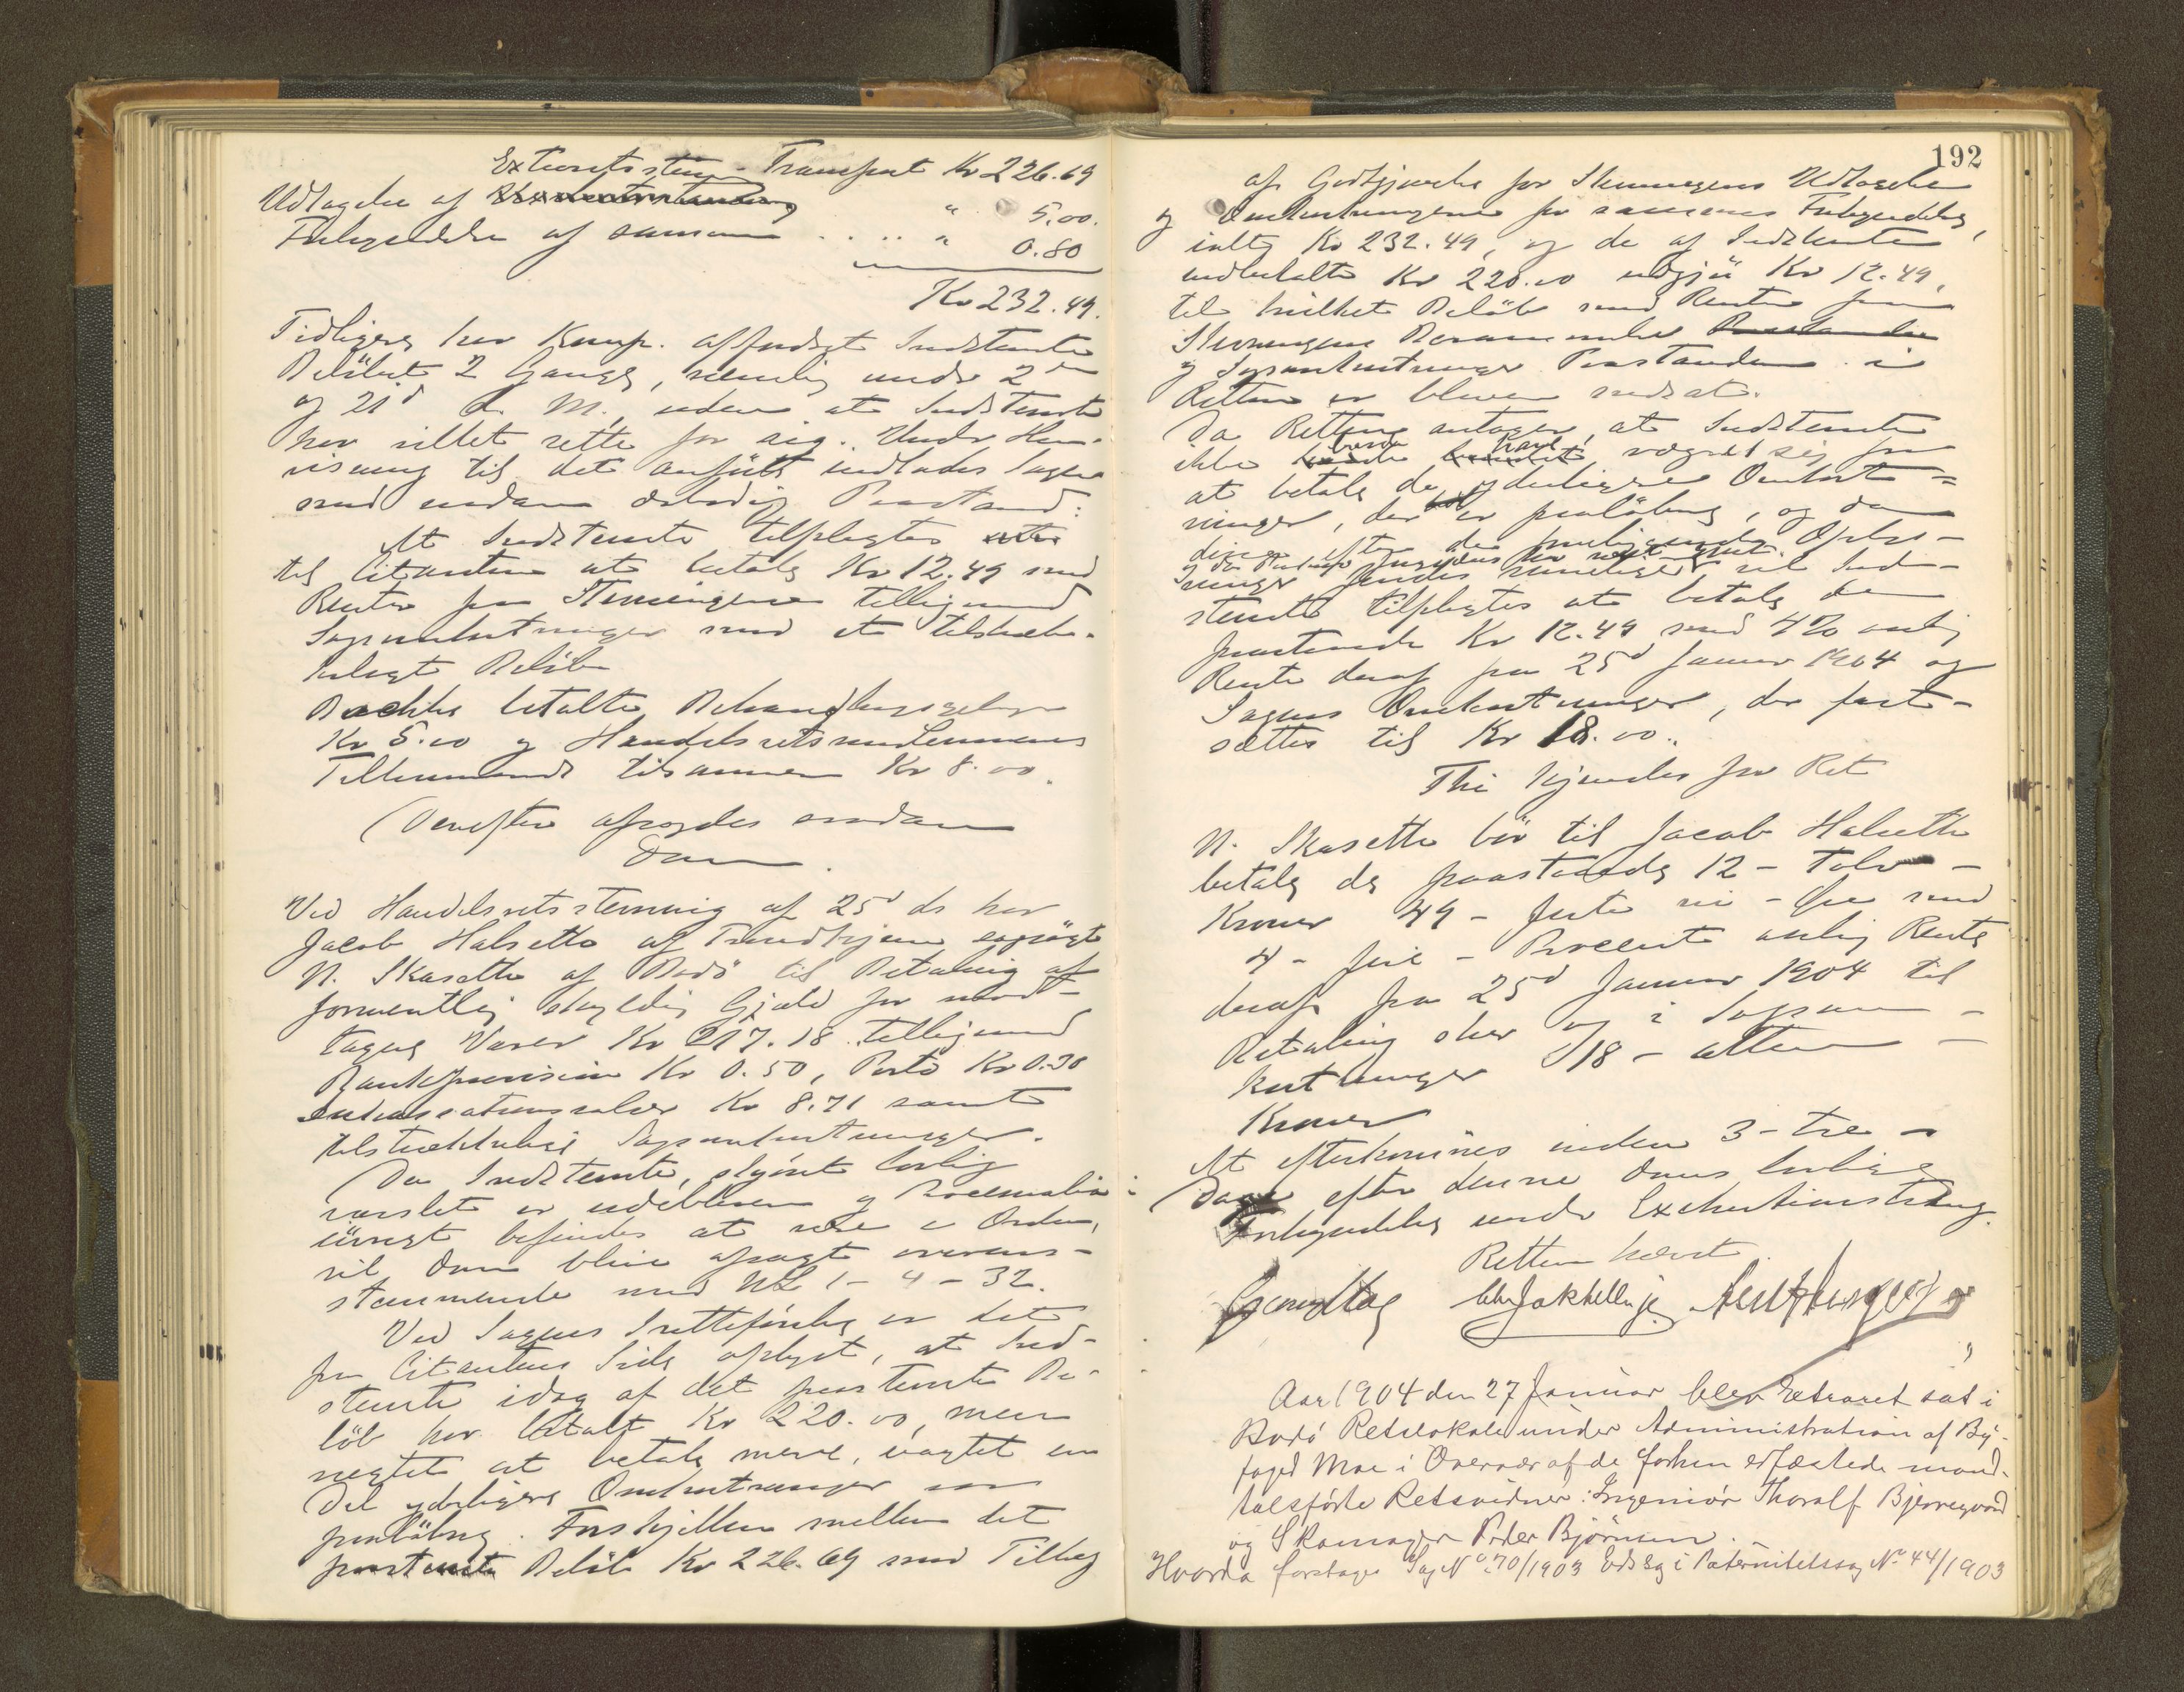 Transport Kr 226.69
Udtagelse af " 5.00.
Forkyndelse af samme .... " 0.80
Kr 232.49.
Tidligere har Komp. affordret Indstevnte
Beløbet 2 Gange, nemlig under 2den
og 21d d. M., uden at Indstevnte
har villet rette for sig. Under Hen-
visning til det anførte indlades Sagen
med saadan ærbødig Paastand:
At Indstevnte tilpligtes
til Citanten at betale Kr 12.49 med
Renter fra Stevningen tilligemed
Sagsomkostninger med et tilstræk-
keligt Beløb
Bachke betalte Behandlingsgebyr
Kr 5.00 og Handelsretsmedlemmernes
Tilkommende tilsammen Kr 8.00.
Derefter afsagdes saadan
Dom.
Ved Handelsretsstevning af 25d ds har
Jacob Halseth af Trondhjem sagsøgt
N. Skaseth af Bodö til Betaling af
formentlig skyldig Gjæld for mod-
tagne Varer Kr 217.18 tilligemed
Bankprovision Kr 0.50, Porto Kr 0.30
Inkassationssalær Kr 8.71 samt
tilstrækkelige Sagsomkostninger.
Da Indstevnte, skjønt lovlig
varslet er udebleven og Incaminationen
iøvrigt befindes at være i Orden,
vil Dom blive afsagt overens-
stemmende med NL 1-4-32.
Ved Sagens Iretteførelse er det
fra Citantens Side oplyst, at Ind-
stevnte idag af det paastevnte Be-
løb har betalt Kr 220.00, men
negtet at betale mere, uagtet en
Del yderligere Omkostninger var
paaløbne. Forskjellen mellem det
paastevnte Beløb Kr 226.69 med Tillæg
192
af Godtgjørelse for Stevningens Udtagelse
og Omkostningerne for sammes Forkyndelse,
ialt Kr 232.49, og de af Indstevnte
indbetalte Kr 220.00 udgjør Kr 12.49,
til hvilket Beløb med Renter fra
Stevningens
og Sagsomkostninger Paastanden i
Retten er bleven nedsat.
Da Retten antager, at Indstevnte
ikke burde have vægret sig for
at betale de yderligere Omkost-
ninger, der er paaløbne, og da
disse efter de foreliggende Oplys-
ninger findes rimelige vil Ind-
stevnte tilpligtes at betale de
paastevnte Kr 12.49 med 4% aarlig
Rente deraf fra 25d Januar 1904 og
Sagens Omkostninger, der fast-
sættes til Kr 18.00.
Thi kjendes for Ret
N. Skaseth bör til Jacob Halseth
betale de paastevnte 12 - Tolv -
Kroner 49 - forti ni - Øre med
4 - fire - Procent aarlig Rente
deraf fra 25d Januar 1904 til
Betaling sker og i Sagsom-
kostninger 18 - atten -
Kroner
At efterkommes inden 3 - tre -
Dage efter denne Doms lovlige
Forkyndelse under Exekutionstvang.
Retten hævet.
Aar 1904 den 27 Januar blev Extraret sat i
Bodö Retslokale under Administration af By-
foged Moe i Overvær af de forhen edfæstede mand-
talsførte Retsvidner: Ingeniör Thoralf Bjerregaard
og Skomager Peder Björnsen.
Hvorda foretoges Sag No 70/1903 Edslag i Paternitetssag No 44/1903